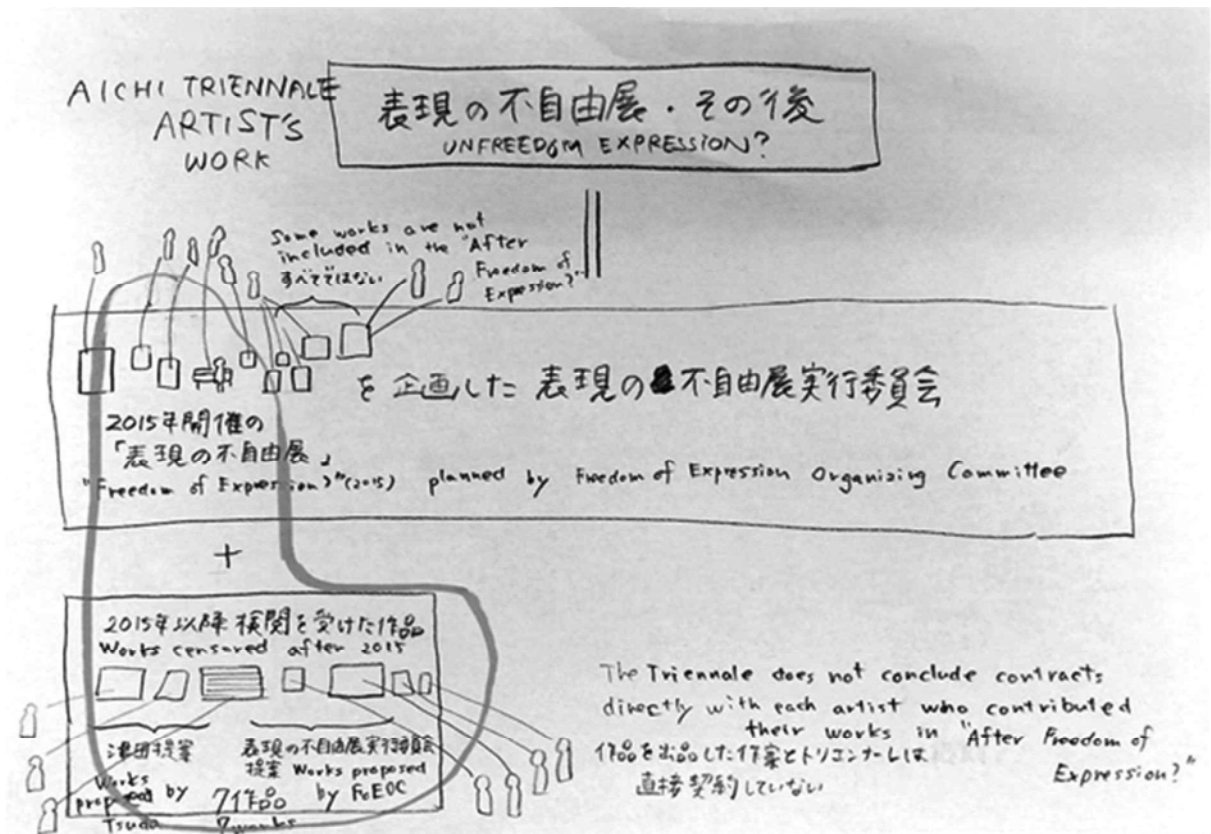 AICHI TRIENNALE
ARTIST'S
WORK
表現の不自由展・その後
UNFREEDOM EXPRESSION?
Some works are not
included in the "After
Freedom of
Expression?"
すべてではない
を企画した 表現の不自由展実行委員会
2015年開催の
「表現の不自由展」
"Freedom of Expression?"(2015) planned by Freedom of Expression Organizing Committee
+
2015年以降 検閲を受けた作品
Works censared after 2015
津田提案
Works
proposed by
Tsuda
7作品
7works
表現の不自由展実行委員会
提案 Works proposed
by FoEOC
The Triennale does not conclude contracts
directly with each artist who contributed
their works in "After Freedom of
Expression?"
作品を出品した作家とトリエンナーレは
直接契約していない